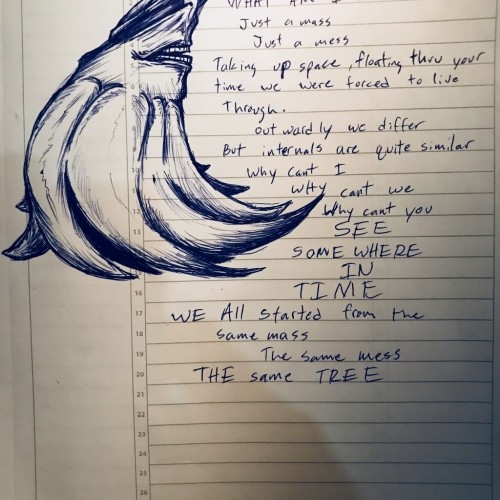 WHAT AM I
Just a mass
Just a mess
Taking up space, floating thru your
time we were forced to live
Through.
outwardly we differ
But internals are quite similar
why cant I
why cant we
Why cant you
SEE
SOME WHERE
IN
TIME
WE All started from the
same mass
The same mess
THE same TREE
8
9
10
11
12
13
16
17
18
19
20
21
22
23
24
25
26